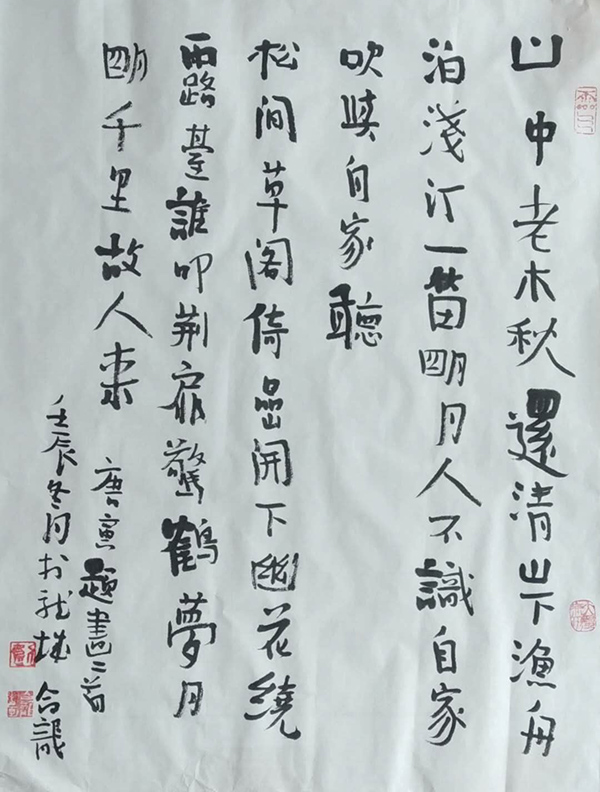 山中老木秋還清山下漁舟
泊淺汀一笛明月人不識自家
吹與自家聽
松間草閣倚嵒開下幽花繞
露臺誰叩荆扉驚鶴夢月
明千里故人來
唐寅題畫二首
壬辰冬月於龍城